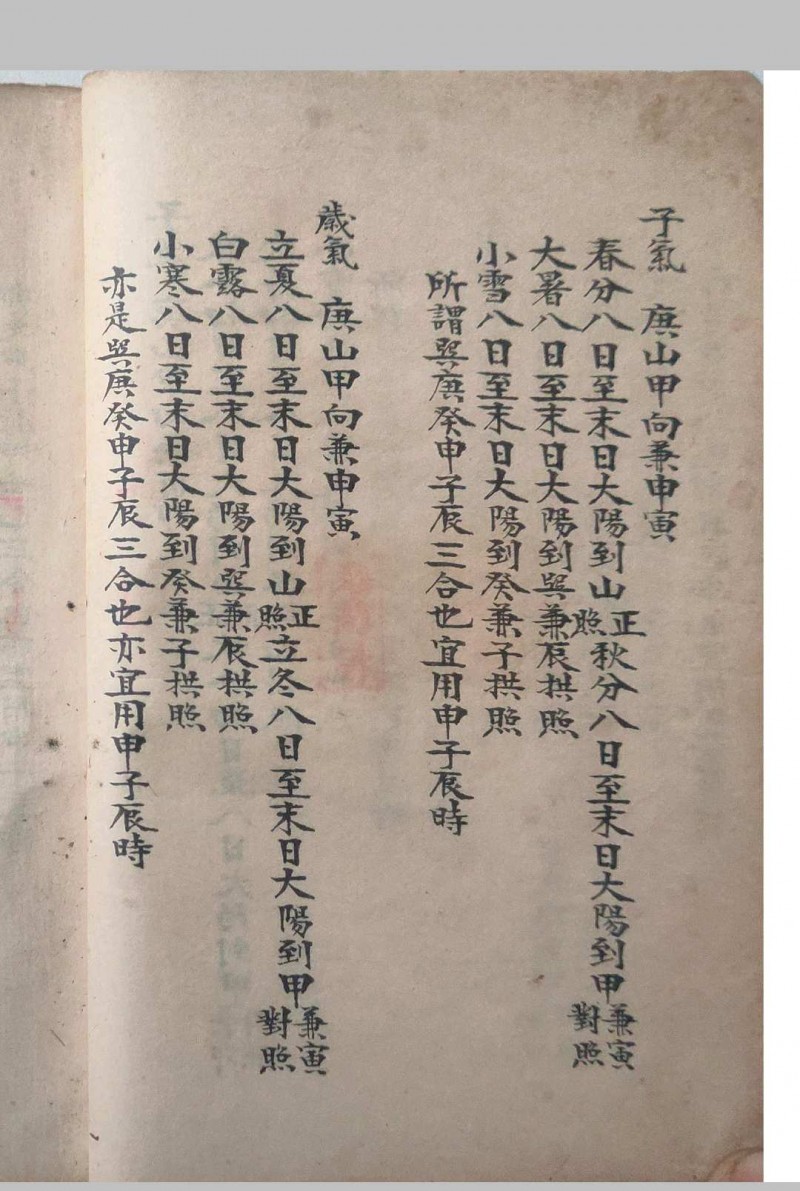 子氣　庚山甲向兼申寅
春分八日至末日大陽到山正照秋分八日至末日大陽到甲兼寅對照
大暑八日至末日大陽到巽兼辰拱照
小雪八日至末日大陽到癸兼子拱照
所謂巽庚癸申子辰三合也宜用申子辰時
歲氣　庚山甲向兼申寅
立夏八日至末日大陽到山正照立冬八日至末日大陽到甲兼寅對照
白露八日至末日大陽到巽兼辰拱照
小寒八日至末日大陽到癸兼子拱照
亦是巽庚癸申子辰三合也亦宜用申子辰時